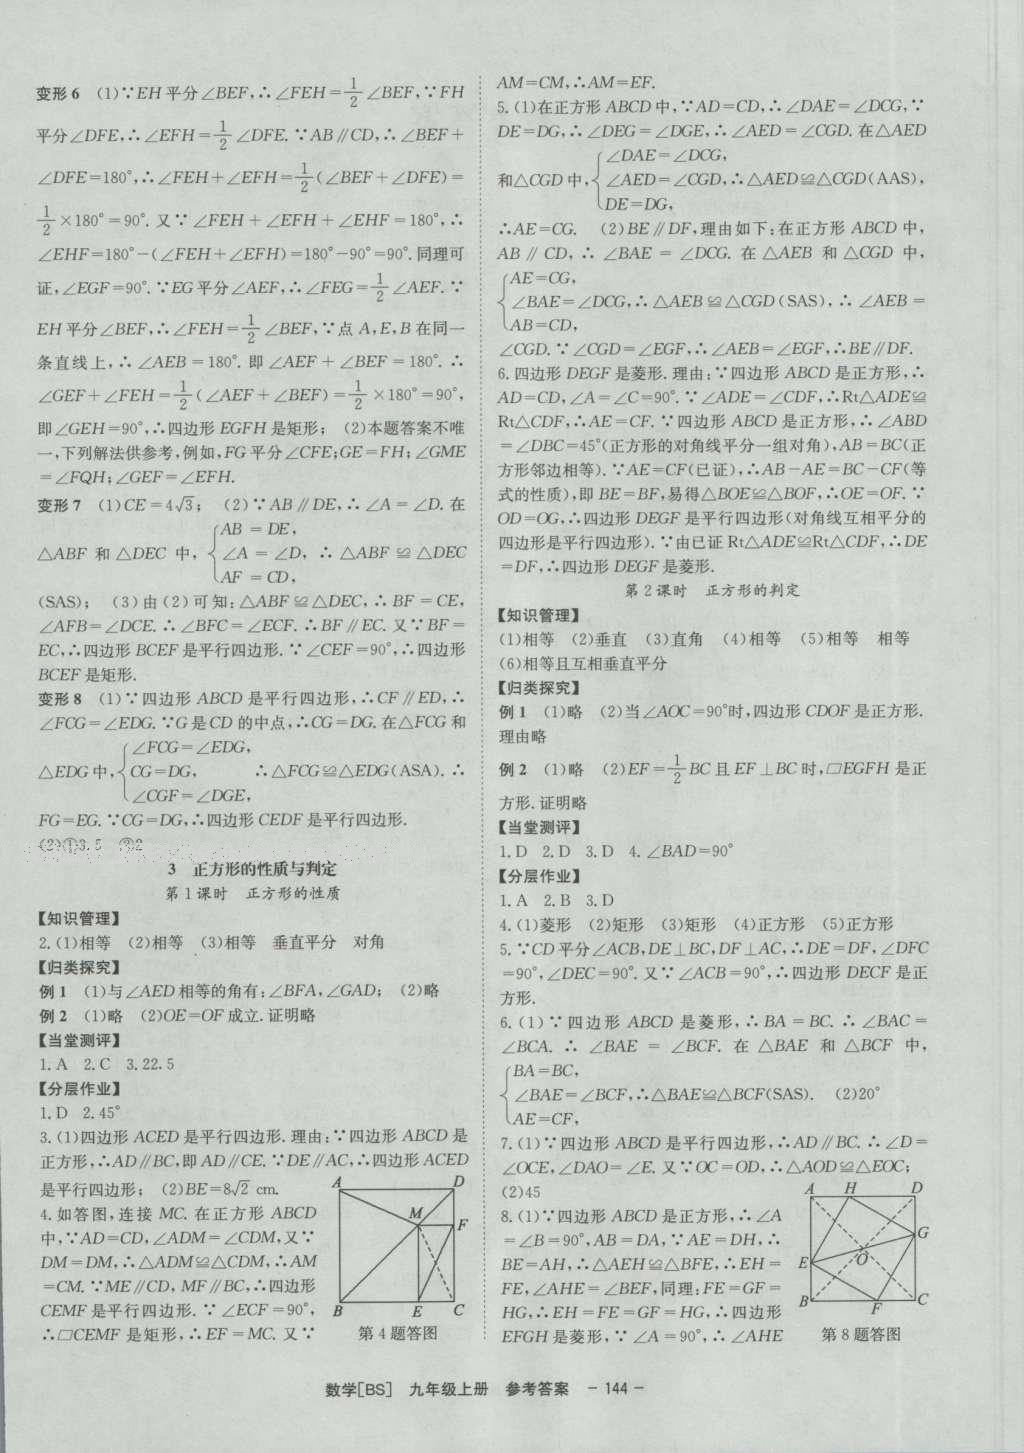 变形6 (1)∵EH平分∠BEF,∴∠FEH=1/2∠BEF,∵FH
平分∠DFE,∴∠EFH=1/2∠DFE.∵AB∥CD,∴∠BEF+
∠DFE=180°,∴∠FEH+∠EFH=1/2(∠BEF+∠DFE)=
1/2×180°=90°.又∵∠FEH+∠EFH+∠EHF=180°,∴
∠EHF=180°-(∠FEH+∠EFH)=180°-90°=90°.同理可
证,∠EGF=90°.∵EG平分∠AEF,∴∠FEG=1/2∠AEF.∵
EH平分∠BEF,∴∠FEH=1/2∠BEF,∵点A,E,B在同一
条直线上,∴∠AEB=180°.即∠AEF+∠BEF=180°.∴
∠GEF+∠FEH=1/2(∠AEF+∠BEF)=1/2×180°=90°,
即∠GEH=90°,∴四边形EGFH是矩形; (2)本题答案不唯
一,下列解法供参考,例如,FG平分∠CFE;GE=FH;∠GME
=∠FQH;∠GEF=∠EFH.
变形7 (1)CE=4√3; (2)∵AB∥DE,∴∠A=∠D.在
△ABF和△DEC中,{AB=DE,
∠A=∠D,∴△ABF≌△DEC
AF=CD,
(SAS); (3)由(2)可知:△ABF≌△DEC,∴BF=CE,
∠AFB=∠DCE.∴∠BFC=∠ECF.∴BF∥EC.又∵BF=
EC,∴四边形BCEF是平行四边形.∵∠CEF=90°,∴四边形
BCEF是矩形.
变形8 (1)∵四边形ABCD是平行四边形,∴CF∥ED,∴
∠FCG=∠EDG.∵G是CD的中点,∴CG=DG.在△FCG和
△EDG中,{∠FCG=∠EDG,
CG=DG, ∴△FCG≌△EDG(ASA).∴
∠CGF=∠DGE,
FG=EG.∵CG=DG,∴四边形CEDF是平行四边形.
(2)①3.5 ②2
3 正方形的性质与判定
第1课时 正方形的性质
【知识管理】
2.(1)相等 (2)相等 (3)相等 垂直平分 对角
【归类探究】
例1 (1)与∠AED相等的角有:∠BFA,∠GAD; (2)略
例2 (1)略 (2)OE=OF成立.证明略
【当堂测评】
1.A 2.C 3.22.5
【分层作业】
1.D 2.45°
3.(1)四边形ACED是平行四边形.理由:∵四边形ABCD是
正方形,∴AD∥BC,即AD∥CE.∵DE∥AC,∴四边形ACED
是平行四边形; (2)BE=8√2 cm.
4.如答图,连接MC.在正方形ABCD
中,∵AD=CD,∠ADM=∠CDM,又∵
DM=DM,∴△ADM≌△CDM,∴AM
=CM.∵ME∥CD,MF∥BC,∴四边形
CEMF是平行四边形.∵∠ECF=90°,
∴□CEMF是矩形,∴EF=MC.又∵
A D
M
F
B E C
第4题答图
AM=CM,∴AM=EF.
5.(1)在正方形ABCD中,∵AD=CD,∴∠DAE=∠DCG,∵
DE=DG,∴∠DEG=∠DGE,∴∠AED=∠CGD.在△AED
和△CGD中,{∠DAE=∠DCG,
∠AED=∠CGD,∴△AED≌△CGD(AAS),
DE=DG,
∴AE=CG. (2)BE∥DF,理由如下:在正方形ABCD中,
AB∥CD,∴∠BAE=∠DCG.在△AEB和△CGD中,
{AE=CG,
∠BAE=∠DCG,∴△AEB≌△CGD(SAS),∴∠AEB=
AB=CD,
∠CGD.∵∠CGD=∠EGF,∴∠AEB=∠EGF,∴BE∥DF.
6.四边形DEGF是菱形.理由:∵四边形ABCD是正方形,∴
AD=CD,∠A=∠C=90°.∵∠ADE=∠CDF,∴Rt△ADE≌
Rt△CDF,∴AE=CF.∵四边形ABCD是正方形,∴∠ABD
=∠DBC=45°(正方形的对角线平分一组对角),AB=BC(正
方形邻边相等).∵AE=CF(已证),∴AB-AE=BC-CF(等
式的性质),即BE=BF,易得△BOE≌△BOF,∴OE=OF.∵
OD=OG,∴四边形DEGF是平行四边形(对角线互相平分的
四边形是平行四边形).∵由已证Rt△ADE≌Rt△CDF,∴DE
=DF,∴四边形DEGF是菱形.
第2课时 正方形的判定
【知识管理】
(1)相等 (2)垂直 (3)直角 (4)相等 (5)相等 相等
(6)相等且互相垂直平分
【归类探究】
例1 (1)略 (2)当∠AOC=90°时,四边形CDOF是正方形.
理由略
例2 (1)略 (2)EF=1/2BC且EF⊥BC时,□EGFH是正
方形.证明略
【当堂测评】
1.D 2.D 3.D 4.∠BAD=90°
【分层作业】
1.A 2.B 3.D
4.(1)菱形 (2)矩形 (3)矩形 (4)正方形 (5)正方形
5.∵CD平分∠ACB,DE⊥BC,DF⊥AC,∴DE=DF,∠DFC
=90°,∠DEC=90°.又∵∠ACB=90°,∴四边形DECF是正
方形.
6.(1)∵四边形ABCD是菱形,∴BA=BC.∴∠BAC=
∠BCA.∴∠BAE=∠BCF.在△BAE和△BCF中,
{BA=BC,
∠BAE=∠BCF,∴△BAE≌△BCF(SAS). (2)20°
AE=CF,
7.(1)∵四边形ABCD是平行四边形,∴AD∥BC.∴∠D=
∠OCE,∠DAO=∠E.又∵OC=OD,∴△AOD≌△EOC;
(2)45
8.(1)∵四边形ABCD是正方形,∴∠A
=∠B=90°,AB=DA,∵AE=DH,∴
BE=AH,∴△AEH≌△BFE,∴EH=
FE,∠AHE=∠BEF,同理:FE=GF=
HG,∴EH=FE=GF=HG,∴四边形
EFGH是菱形,∵∠A=90°,∴∠AHE
A H D
G
E O
B F C
第8题答图
数学[BS] 九年级上册 参考答案 -144-